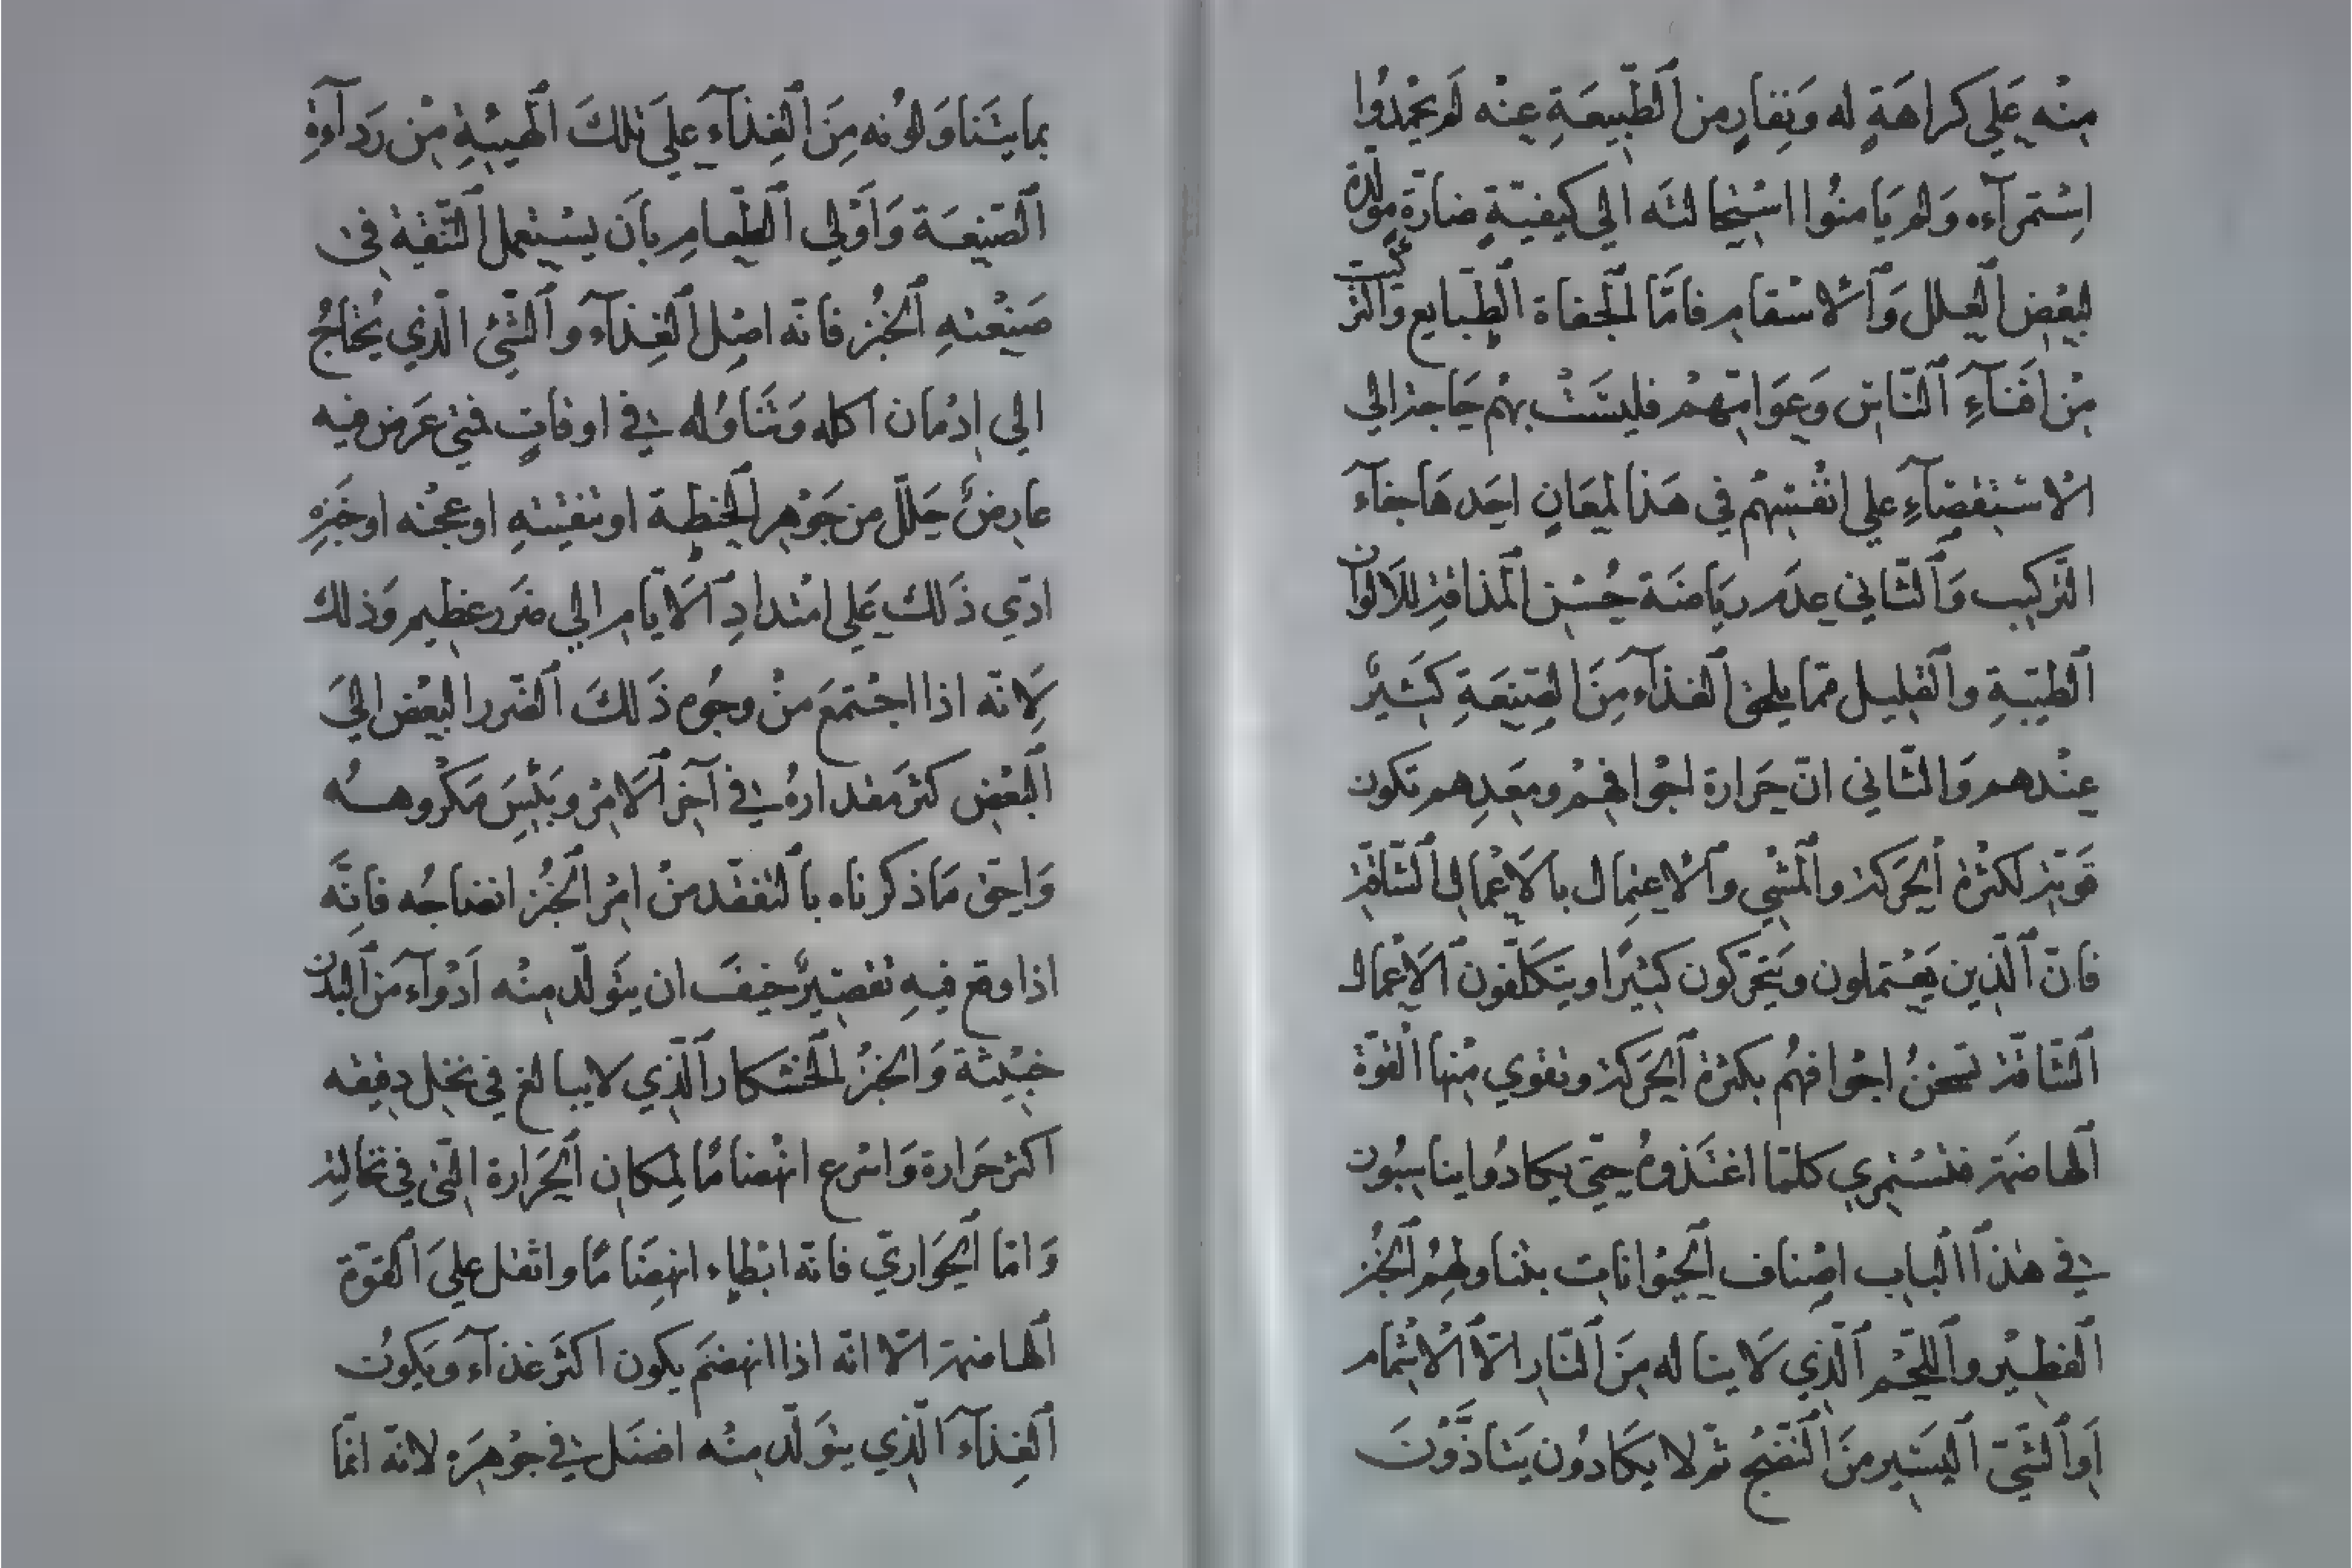 منْه عَلي كراهَةٍ له وَنِفارٍ من الطّبيعَةِ عنْه لَم يحْمدُوا
اِسْتمرآءه وَلم يَامنُوا اسْتِحَالتَه الي كيفيّةٍ ضارّةٍ مولّدة
لبعْض العِلل وَالْاسْقام فامّا الجفاة الطّبايع وَالتّركيب
منْ افنَآءِ النّاس وَعَوَامّهمْ فليسَتْ بهمْ حَاجة الي
الْاسْتقصَآءِ علي انفُسهُم في هَذا لمعَانٍ احَدهَا جفآء
التّركيب وَالثّاني عدَم ريَاضَة حُسْن المَذاقة للالوان
الطيّبةِ والقليل ممّا يلحق الغذآء مِنَ الصّنعَةِ كَثيرٌ
عنْدهم وَالثّاني انّ حَرارة اجْوافهمْ ومعَدِهم تكون
قَويّة لكثْرة الحَركة والمَشْي والْاعتِمال بالَاعْمال الشّاقّة
فانّ الّذين يَعْتملون ويَتحَرّكون كثيرًا ويتكلّفون الَاعْمال
الشّاقّة تسْخنُ اجْوافهُم بكثرة الحَركة وتقوي منْها القُوّة
الهاضمَة فتسْتمري كلمّا اغتَذوهُ حتّي يكادُوا يناسبُون
في هٰذا الباب اصْناف الحَيْوانات بتناولهِمُ الخبُز
الفطيْر واللّحْم الّذي لَا يناله مِنَ النّار الّا الْاشْمام
اَو الشّيّ اليَسَير منَ النّضْج ثمّ لا يكَادُون يَتاذَّوْنَ
بما يتَناوَلوُنه مِنَ الغِذآءِ علَي تلكَ الهَيئةِ منْ رَدآءةِ
الصّنعَة وَاَوْلي الطّعام بِاَن يسْتعمل التَّنقية في
صَنْعتهِ الخبُز فانّه اصْل الغِذآء والشّيْ الّذي يُحْتَاجُ
الي اِدْمان اكله وَتنَاوُله في اوقاتٍ فمتي عَرض فيه
عارضٌ خَلَل من جَوْهر الحِنطة او تنقيتهِ او عجْنه او خَبْزهِ
ادّي ذَلك عَلي امْتدادِ الَايّام الي ضَررٍ عظيم وَذلك
لَانّه اذا اجْتمعَ منْ وجُوه ذَلكَ الضّرر البعْض الَي
البَعْض كثرَ مقدارهُ في آخر الَامْر وبَئسَ مَكْروهُه
وَاحقّ مَا ذكرناه بالتفقّد منْ امْر الخبُز انضاجُه فانّه
اذا وقع فيهِ تقصيرٌ خيفَ ان يتَولّد منْه اَدْوآء مَنَ البدَن
خبيْثة وَالخبُز الخشكار الّذي لا يبالغ في نخل دقيقه
اكثر حَرارة وَاسْرع انْهضامًا لمكان الحَرارة الّتي في نخالته
وَامّا الحَوّاريّ فانّه ابْطاء انهضَامًا واثقل علَي القوّة
الهاضمة الّا انّه اذا انهضَمَ يكون اكثَر غذآء ويَكوُن
الغِذآء الّذي يتوَلّد منْه افضَل في جوْهَره لانّه انّما